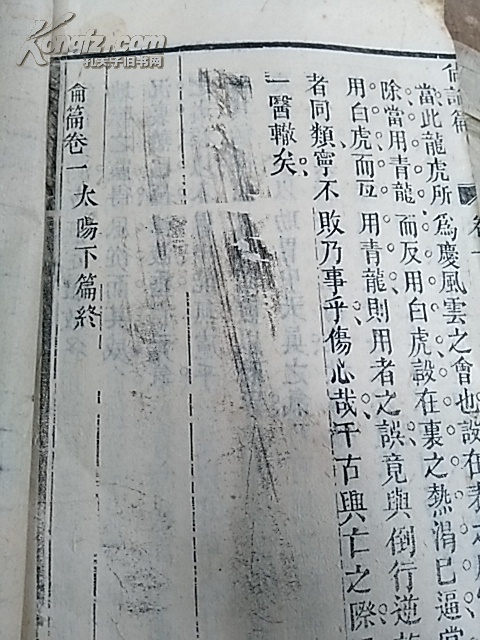 Kongfz.com
孔夫子旧书网
尙論篇
卷一
當此龍虎所爲慶風雲之會也設在表之
除當用青龍而反用白虎設在裏之熱渴已逼
用白虎而反用青龍則用者之誤竟與倒行逆
者同類寧不敗乃事乎傷心哉千古興亡之際
一醫轍矣
侖篇卷一太陽下篇終